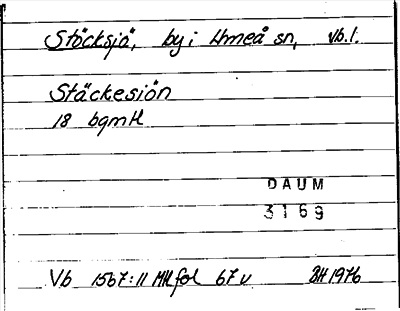 Stöcksjö, by i Umeå sn, Vb.l.
Stäckesiön
18 bgmH
DAUM
3169
Vb 1567:11 MHfol 67v BH 1976